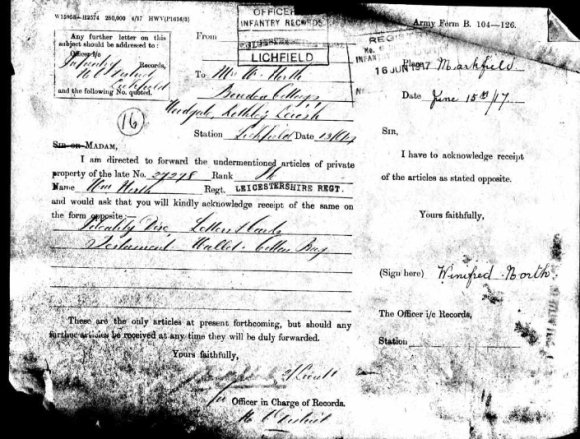 W15958—H2574 250,000 4/17 HWV(P1416/3)
Army Form B. 104—126.
Any further letter on this
subject should be addressed to:
Officer i/c
Infantry Records,
Lichfield
and the following No. quoted.
16
From
OFFICER
INFANTRY RECORDS
LICHFIELD
To Mrs W. North
Station Lichfield Date
SIR or MADAM,
I am directed to forward the undermentioned articles of private
property of the late No. 27278 Rank Pte
Name Wm North Regt. LEICESTERSHIRE REGT.
and would ask that you will kindly acknowledge receipt of the same on
the form opposite:
Identity Disc, Letters & Cards
Testament Wallet Cotton Bag
These are the only articles at present forthcoming, but should any
further articles be received at any time they will be duly forwarded.
Yours faithfully,
2/Lieut
for Officer in Charge of Records.
No.
INFANT
16 JUN 1917
Place Markfield
Date June 15th/17
SIR,
I have to acknowledge receipt
of the articles as stated opposite.
Yours faithfully,
(Sign here) Winifred North
The Officer i/c Records,
Station